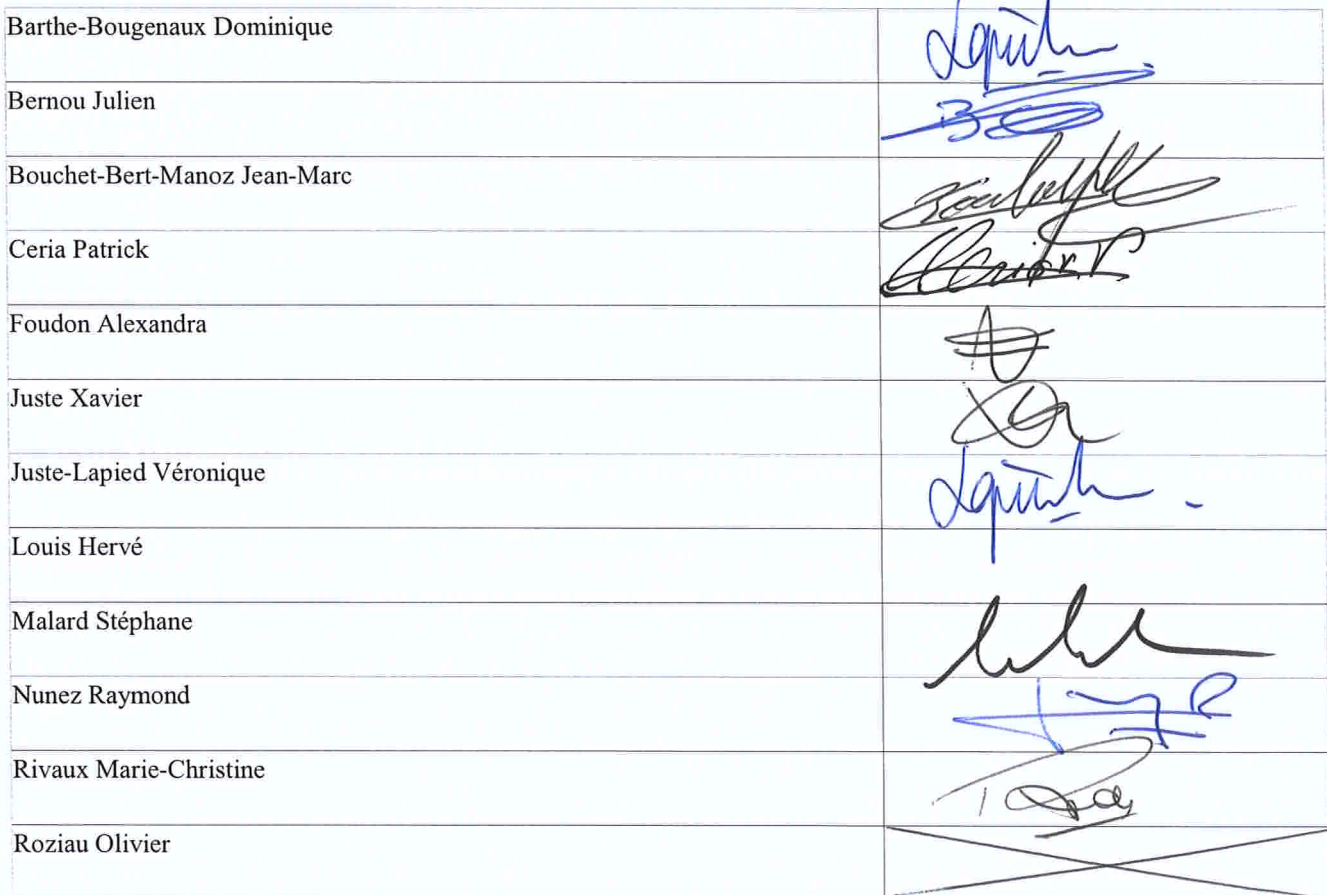 Barthe-Bougenaux Dominique
Bernou Julien
Bouchet-Bert-Manoz Jean-Marc
Ceria Patrick
Foudon Alexandra
Juste Xavier
Juste-Lapied Véronique
Louis Hervé
Malard Stéphane
Nunez Raymond
Rivaux Marie-Christine
Roziau Olivier